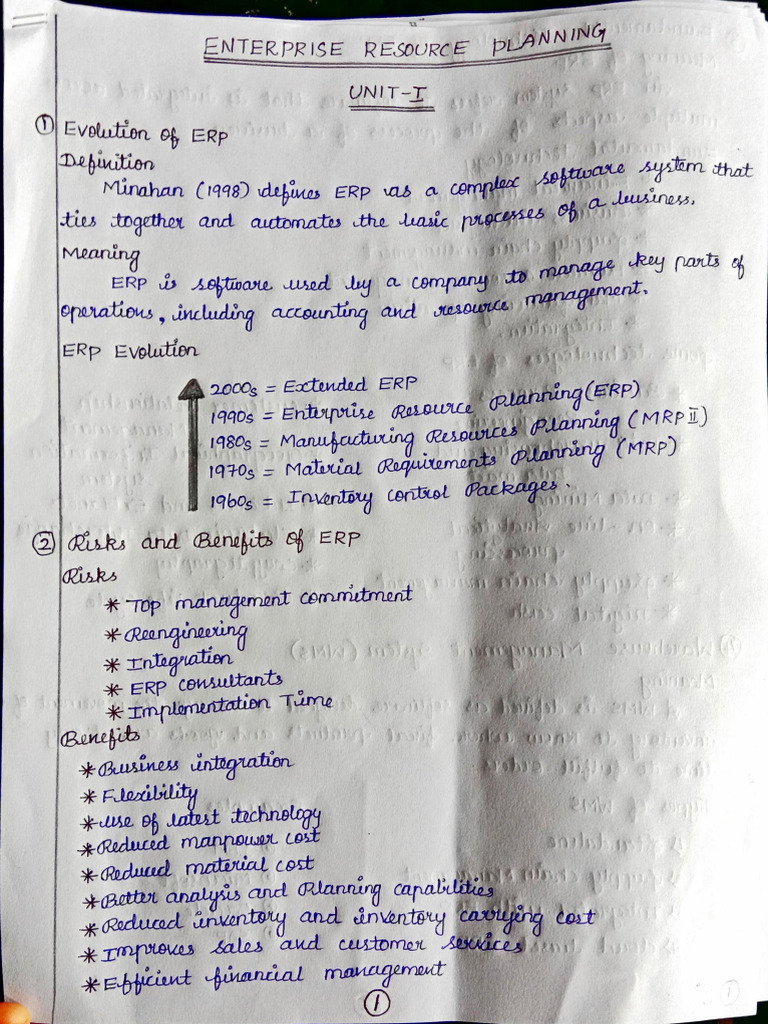 ENTERPRISE RESOURCE PLANNING
UNIT-I
① Evolution of ERP
Definition
Minahan (1998) defines ERP as a complex software system that
ties together and automates the basic processes of a business.
Meaning
ERP is software used by a company to manage key parts of
operations, including accounting and resource management.
ERP Evolution
2000s = Extended ERP
1990s = Enterprise Resource Planning (ERP)
1980s = Manufacturing Resources Planning (MRP II)
1970s = Material Requirements Planning (MRP)
1960s = Inventory Control Packages.
② Risks and Benefits of ERP
Risks
* Top management commitment
* Reengineering
* Integration
* ERP consultants
* Implementation Time
Benefits
* Business integration
* Flexibility
* Use of latest technology
* Reduced manpower cost
* Reduced material cost
* Better analysis and Planning capabilities
* Reduced inventory and inventory carrying cost
* Improves sales and customer services
* Efficient financial management
①